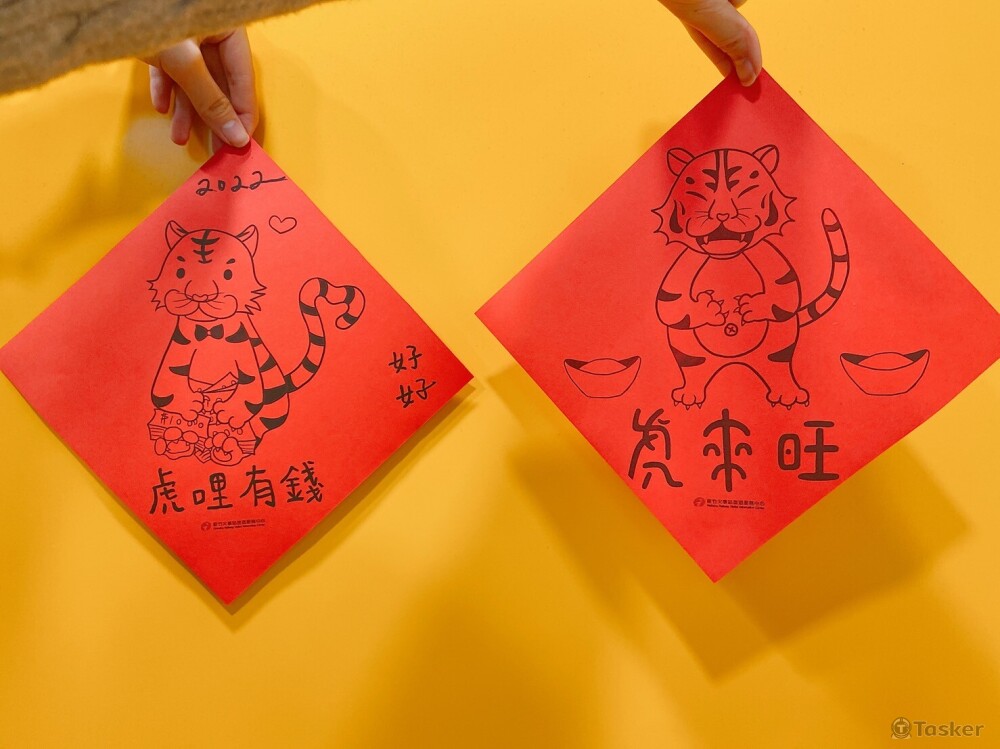 2022
好
好
虎哩有錢
虎來旺
Tasker